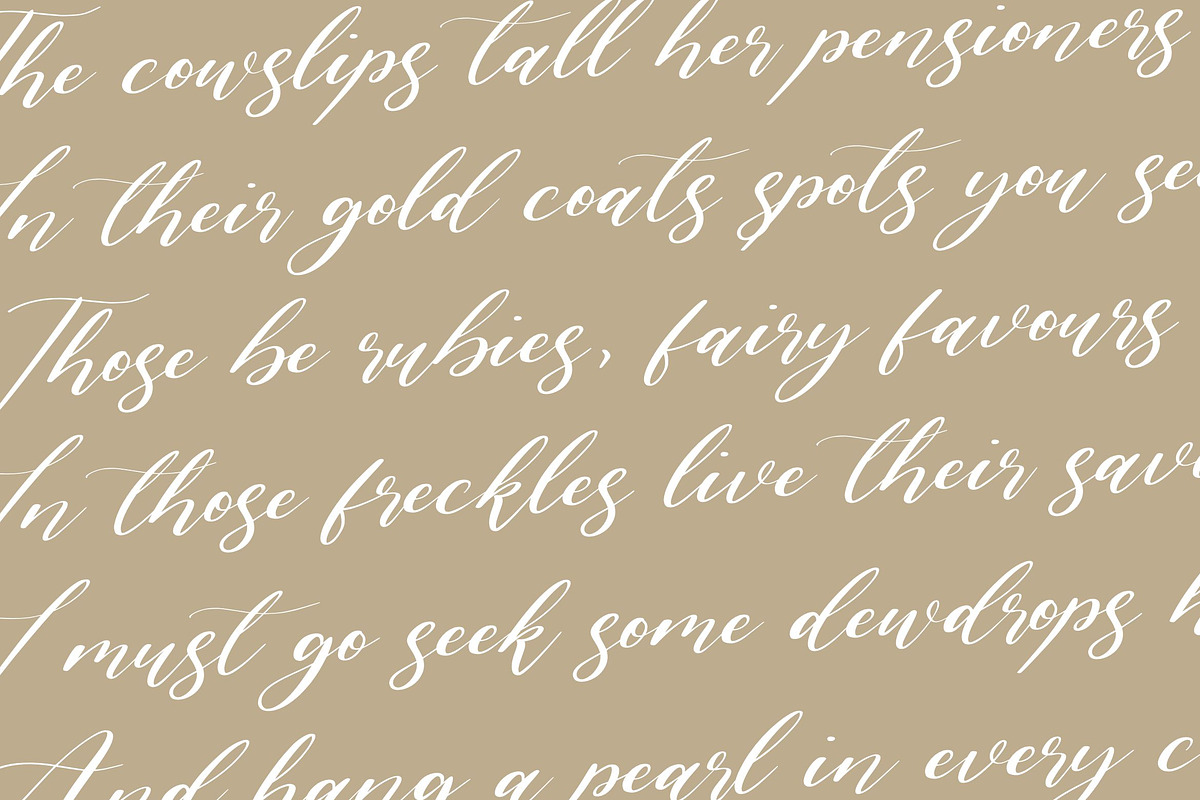 The cowslips tall her pensioners
In their gold coats spots you see
Those be rubies, fairy favours
In those freckles live their sav
I must go seek some dewdrops h
And hang a pearl in every c